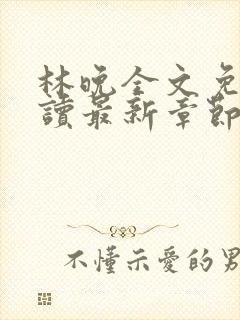 林晚全文免
讀最新章節
不懂示愛的男